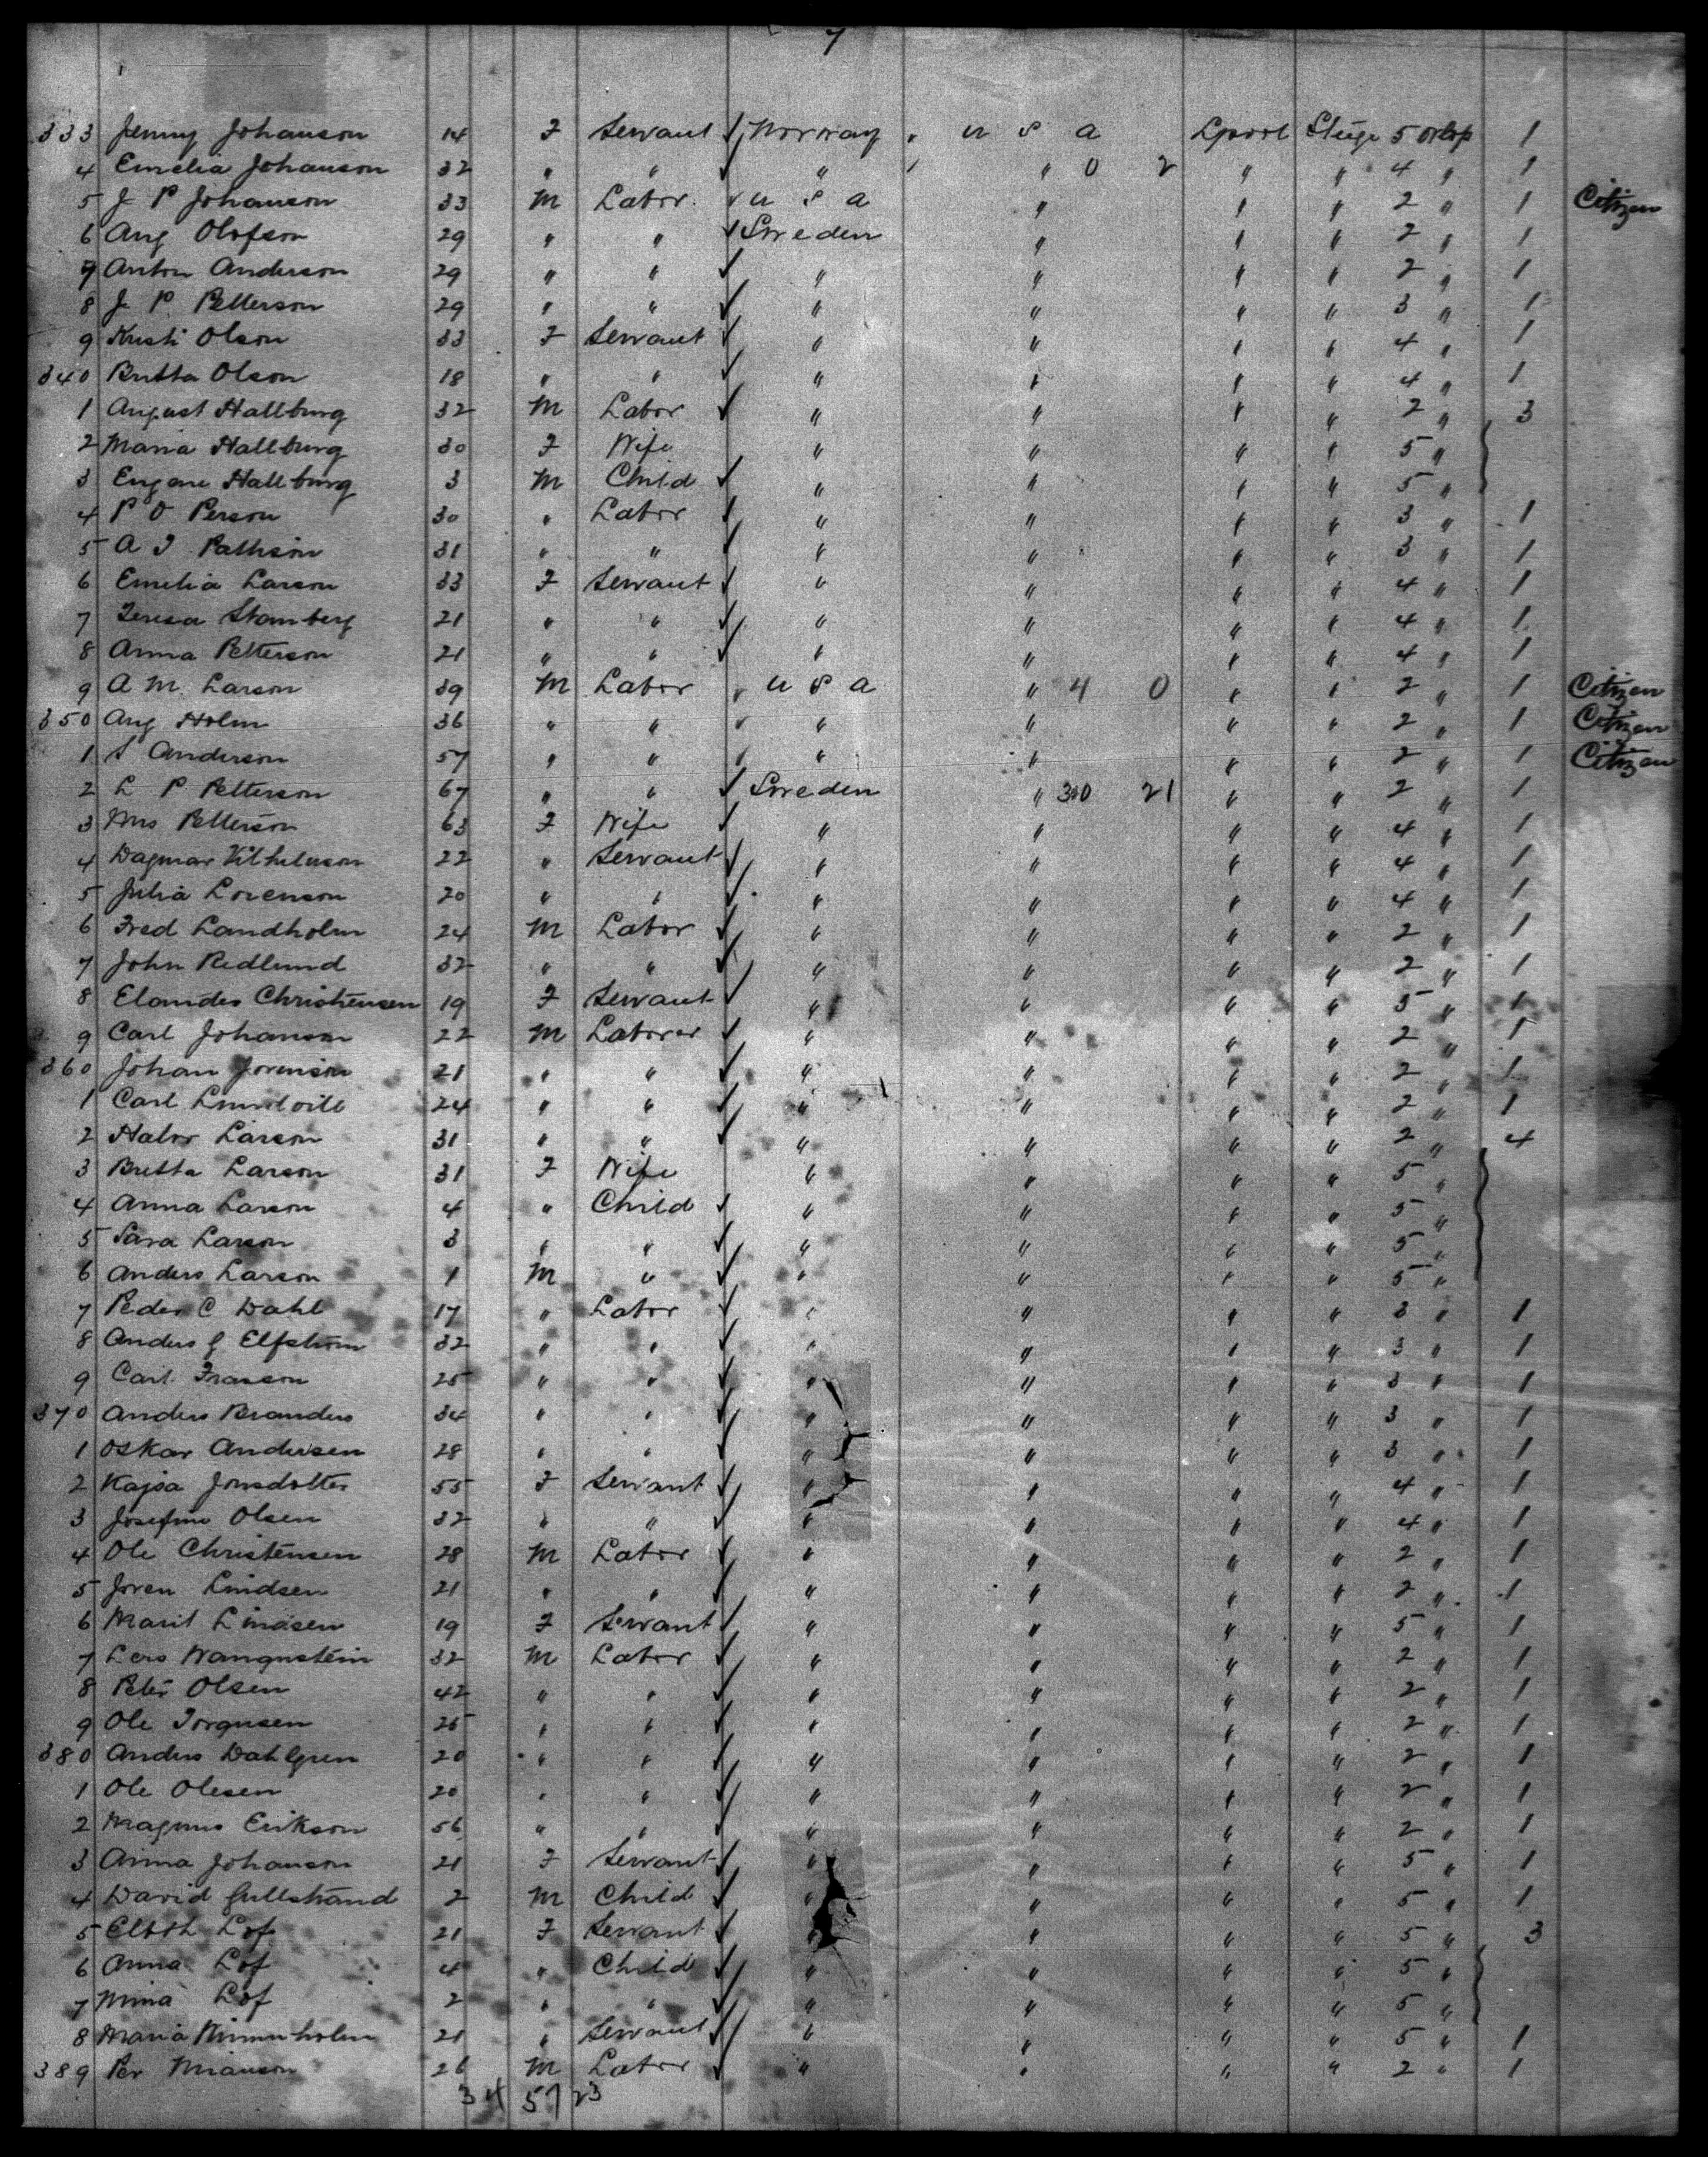 7
333 Jenny Johanson 14 F Servant ✓ Norway " U S A Lpool Stege 5 orlop 1
4 Emelia Johanson 32 " " ✓ " " 0 2 " " 4 " 1
5 J P Johanson 33 M Labor U S A " " " 2 " 1 Citizen
6 Aug Olofson 29 " " ✓ Sweden " " " 2 " 1
7 Anton Anderson 29 " " ✓ " " " " 2 " 1
8 J P Petterson 29 " " ✓ " " " " 3 " 1
9 Kusti Olson 33 F Servant ✓ " " " " 4 " 1
340 Britta Olson 18 " " ✓ " " " " 4 " 1
1 August Hallburg 32 M Labor ✓ " " " " 2 " 3
2 Maria Hallburg 30 F Wife " " " " 5 "
3 Eugene Hallburg 3 M Child ✓ " " " " 5 "
4 P O Person 30 " Labor ✓ " " " " 3 " 1
5 A J 31 " " ✓ " " " " 3 " 1
6 Emelia Larson 33 F Servant ✓ " " " " 4 " 1
7 Teresa Stomberg 21 " " ✓ " " " " 4 " 1
8 Anna Petterson 21 " " ✓ " " " " 4 " 1
9 A M Larson 39 M Labor " U S A " 4 0 " " 2 " 1 Citizen
350 Aug Holm 36 " " " " " " 2 " 1 Citizen
1 S Anderson 57 " " " " " " 2 " 1 Citizen
2 L P Petterson 67 " " ✓ Sweden " 30 21 " " 2 " 1
3 Mrs Petterson 63 F Wife ✓ " " " " 4 " 1
4 Dagmar Vilhelmson 22 " Servant ✓ " " " " 4 " 1
5 Julia Lorenson 20 " " ✓ " " " " 4 " 1
6 Fred Landholm 24 M Labor ✓ " " " " 2 " 1
7 John Redlund 32 " " ✓ " " " " 2 " 1
8 Christensen 19 F Servant ✓ " " " " 5 " 1
9 Carl Johanson 22 M Laborer ✓ " " " " 2 " 1
360 Johan 21 " " ✓ " " " " 2 " 1
1 Carl 24 " " ✓ " " " " 2 " 1
2 Halvor Larson 31 " " ✓ " " " " 2 " 4
3 Britta Larson 31 F Wife " " " " 5 "
4 Anna Larson 4 " Child ✓ " " " " 5 "
5 Sara Larson 3 " " ✓ " " " " 5 "
6 Anders Larson 1 M " ✓ " " " " 5 "
7 Peder C Dahl 17 " Labor ✓ " " " " 3 " 1
8 Anders G Elfstrom 32 " " ✓ " " " " 3 " 1
9 Carl Frasson 25 " " ✓ " " " " 3 " 1
370 Anders Branders 34 " " ✓ " " " " 3 " 1
1 Oskar Andersen 28 " " ✓ " " " " 3 " 1
2 Kajsa Jonsdotter 55 F Servant ✓ " " " " 4 " 1
3 Josefine Olsen 32 " " ✓ " " " " 4 " 1
4 Ole Christensen 28 M Labor ✓ " " " " 2 " 1
5 Joren Lindsen 21 " " ✓ " " " " 2 " 1
6 Marit Lindsen 19 F Servant ✓ " " " " 5 " 1
7 Lars Wangnstein 32 M Labor ✓ " " " " 2 " 1
8 Peter Olsen 42 " " ✓ " " " " 2 " 1
9 Ole Torgusen 25 " " ✓ " " " " 2 " 1
380 Anders Dahlgren 20 " " ✓ " " " " 2 " 1
1 Ole Olesen 20 " " ✓ " " " " 2 " 1
2 Magnus Erikson 56 " " ✓ " " " " 2 " 1
3 Anna Johanson 21 F Servant ✓ " " " " 5 " 1
4 David Gullstrand 2 M Child ✓ " " " " 5 " 1
5 Elbth Lof 21 F Servant ✓ " " " " 5 " 3
6 Anna Lof 4 " Child ✓ " " " " 5 "
7 Mina Lof 2 " " ✓ " " " " 5 "
8 Maria 21 " Servant ✓ " " " " 5 " 1
389 Per 26 M Labor ✓ " " " " 2 " 1
34 57 23